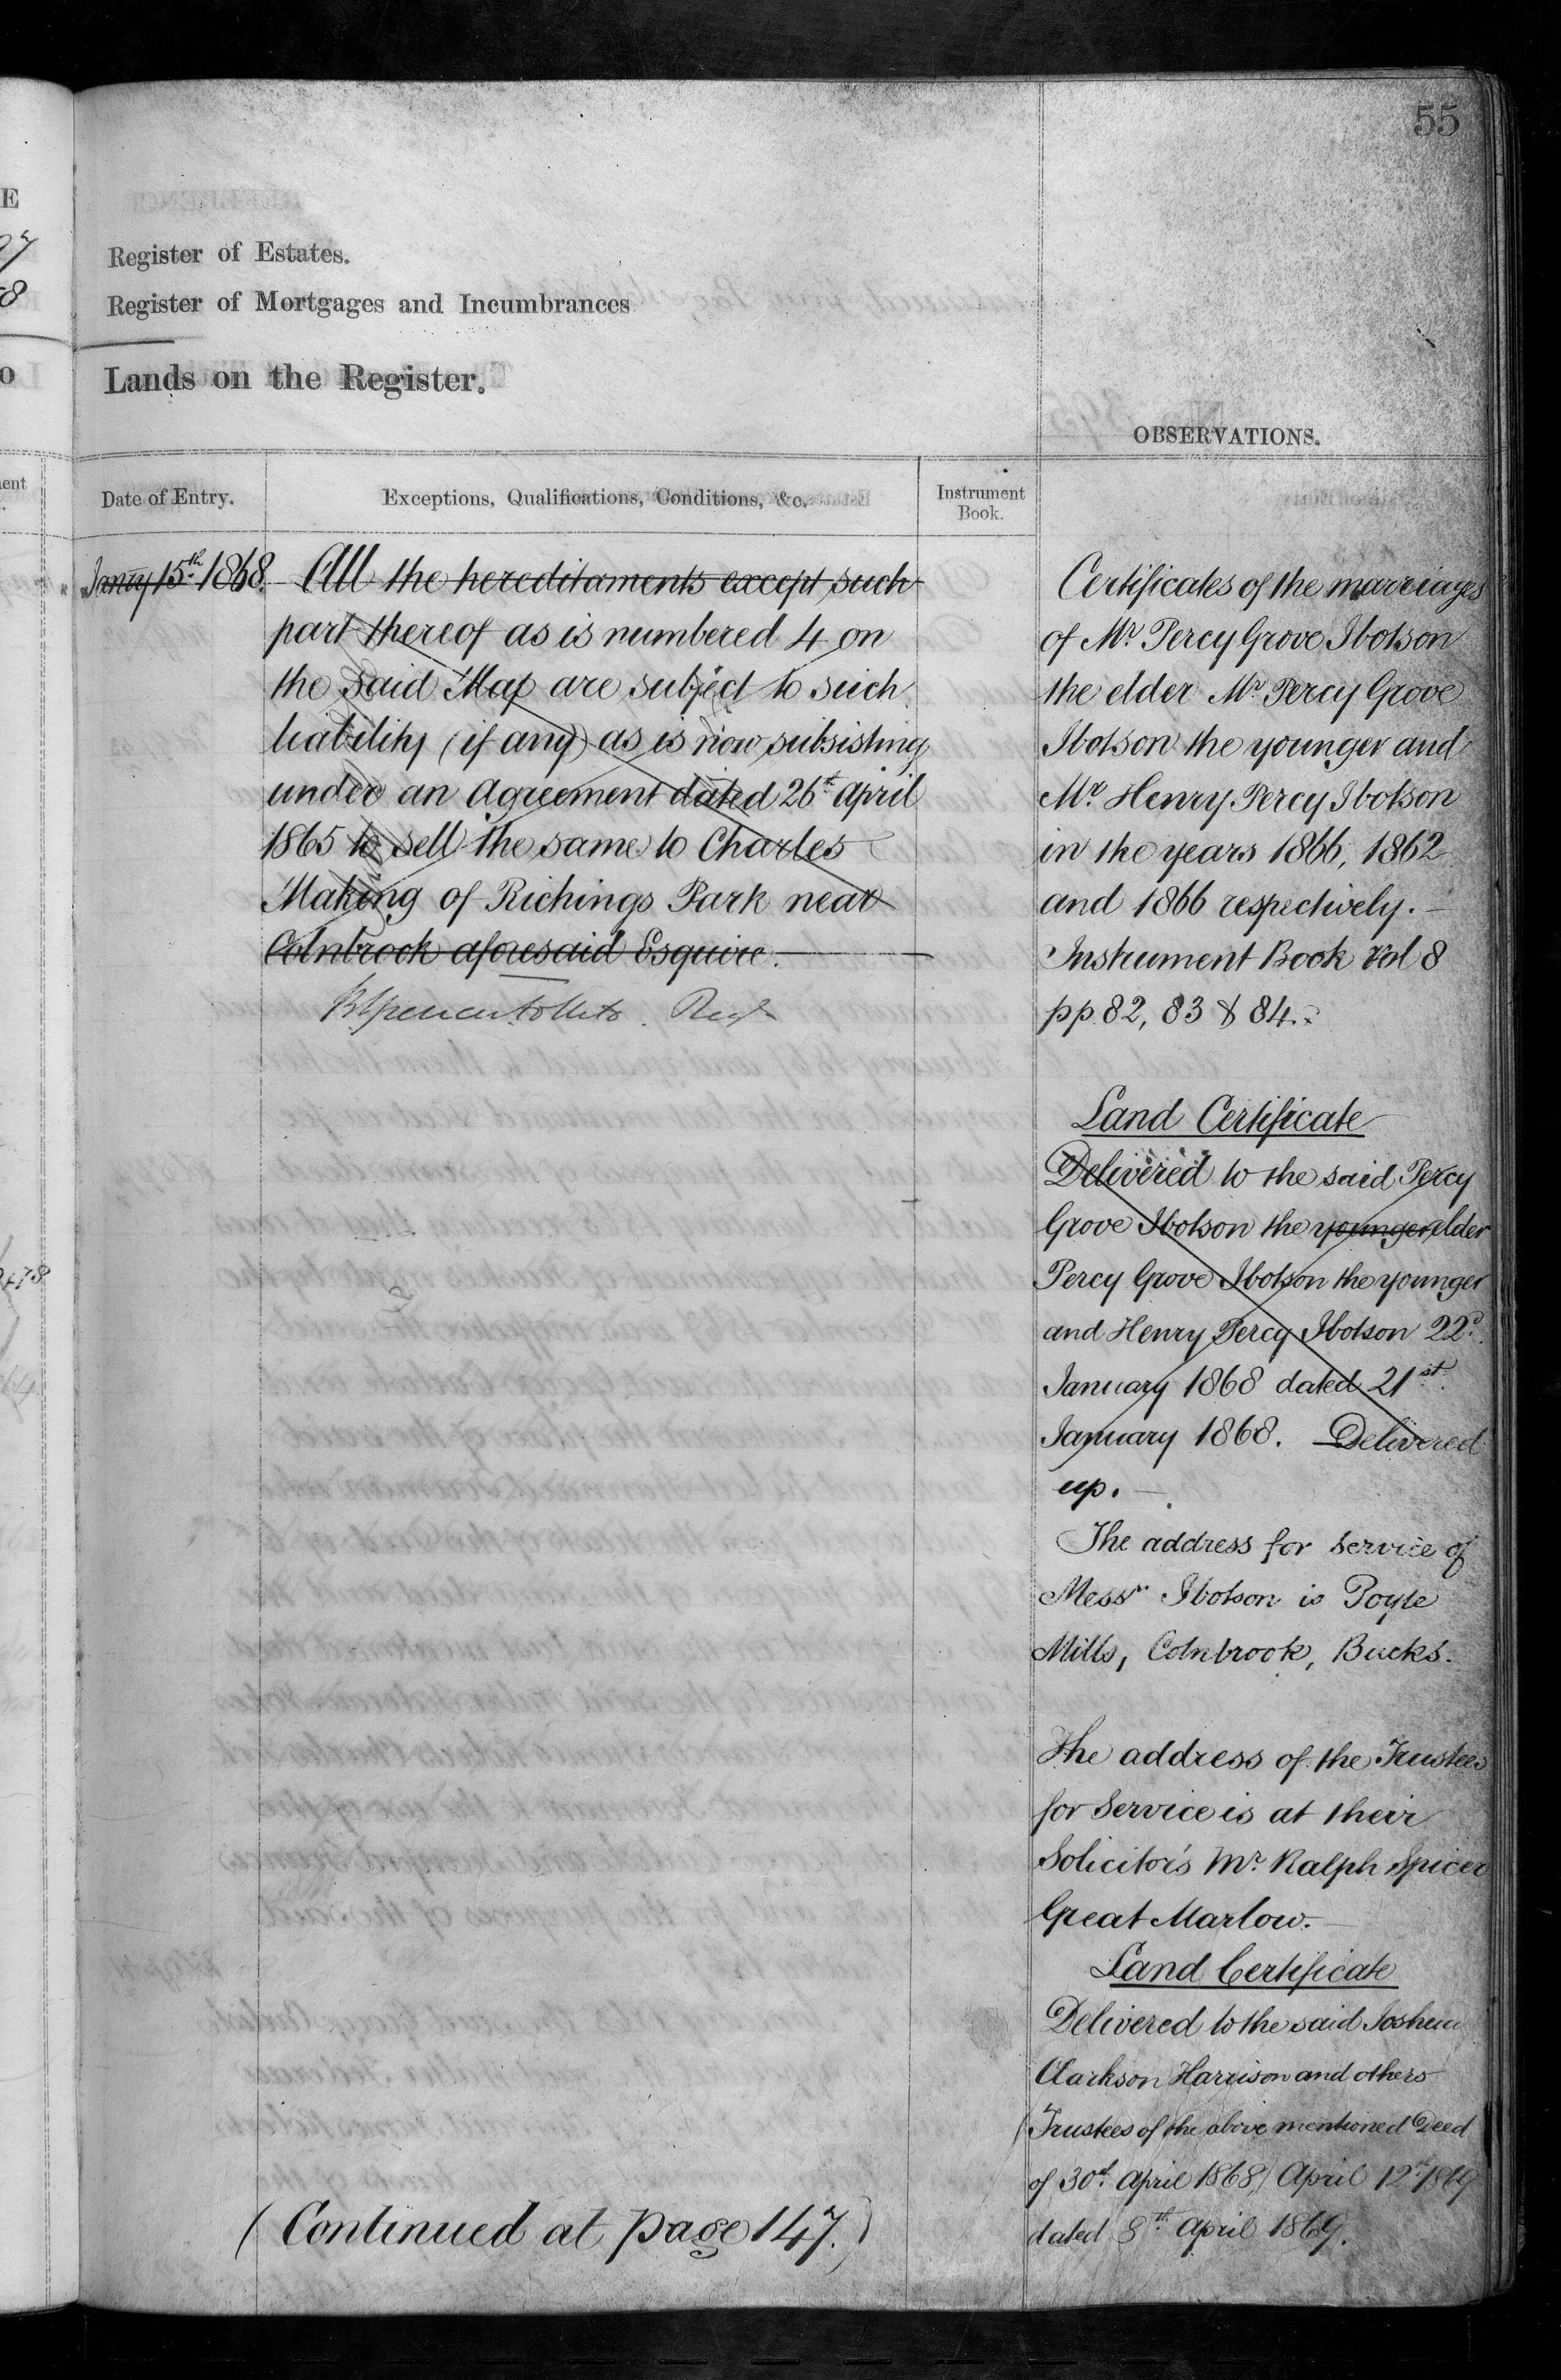 55
Register of Estates.
Register of Mortgages and Incumbrances
Lands on the Register.
OBSERVATIONS.
Date of Entry.
Exceptions, Qualifications, Conditions, &c.
Instrument
Book.
Janry 15th 1868.
All the hereditaments except such
part thereof as is numbered 4 on
the said Map are subject to such
liability (if any) as is now subsisting
under an Agreement dated 26th April
1865 to sell the same to Charles
Making of Richings Park near
Colnbrook aforesaid Esquire.
(Continued at page 147.)
Certificates of the marriages
of Mr. Percy Grove Ibotson
the elder Mr. Percy Grove
Ibotson the younger and
Mr. Henry Percy Ibotson
in the years 1866, 1862
and 1866 respectively.
Instrument Book Vol 8
pp. 82, 83 & 84.
Land Certificate
Delivered to the said Percy
Grove Ibotson the younger elder
Percy Grove Ibotson the younger
and Henry Percy Ibotson 22d.
January 1868 dated 21st.
January 1868. Delivered
up.
The address for service of
Messrs Ibotson is Poyle
Mills, Colnbrook, Bucks.
The address of the Trustees
for Service is at their
Solicitor's Mr. Ralph Spicer
Great Marlow.
Land Certificate
Delivered to the said Joshua
Clarkson Harrison and others
(Trustees of the above mentioned Deed
of 30th. April 1868) April 12th. 1869
dated 8th. April 1869.